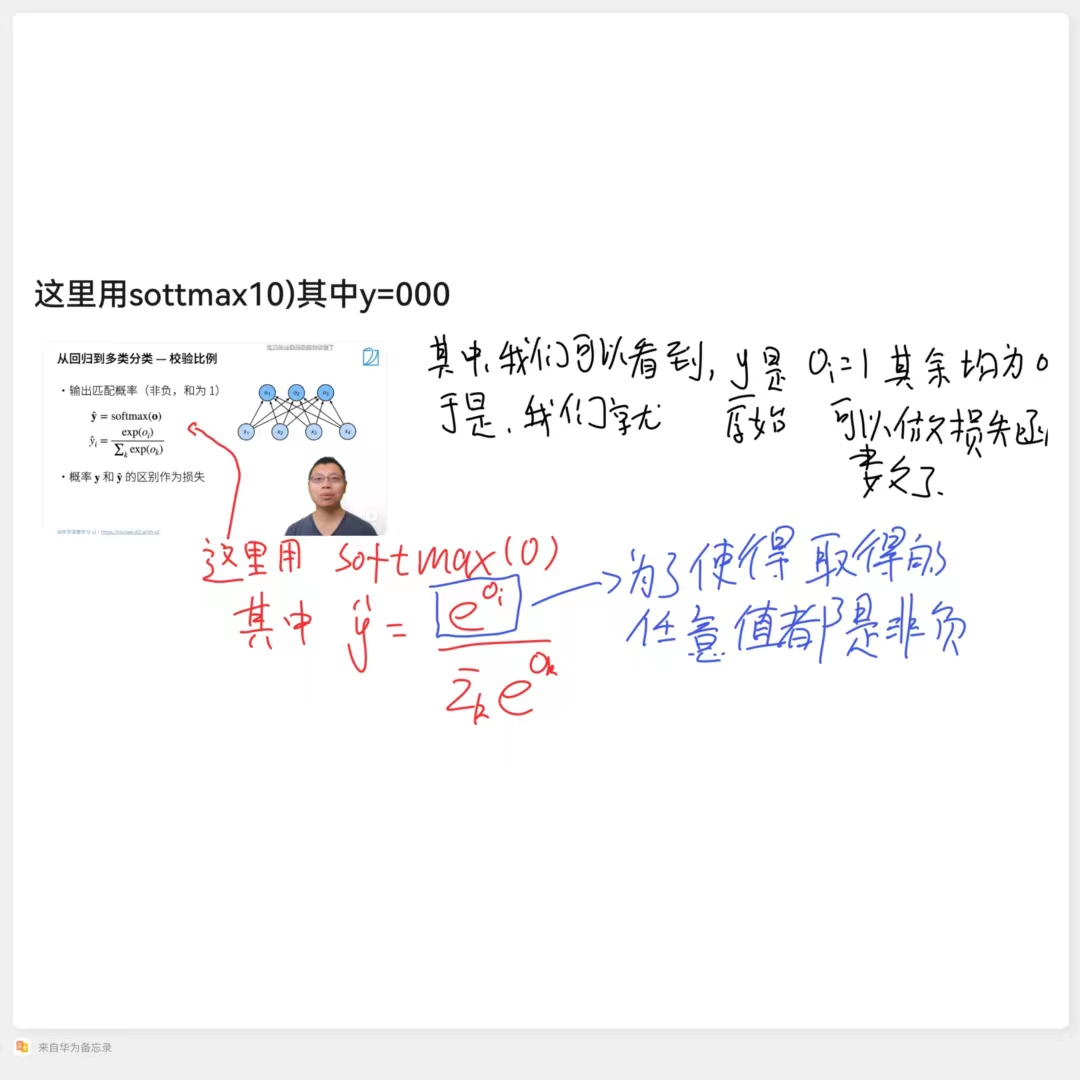 这里用sottmax10)其中y=000
从回归到多类分类 — 校验比例
• 输出匹配概率（非负，和为 1）
ŷ = softmax(o)
ŷᵢ = exp(oᵢ) / ∑ₖ exp(oₖ)
• 概率 y 和 ŷ 的区别作为损失
o₁ o₂ o₃
x₁ x₂ x₃ x₄
其中,我们可以看到, y是 Oᵢ=1 其余均为0
于是,我们学尤 原始 可以做损失函
数了.
这里用 softmax(O)
其中 ŷ = e^{Oᵢ} / Σₖ e^{Oₖ}
为了使得取得的
任意值都是非负
来自华为备忘录